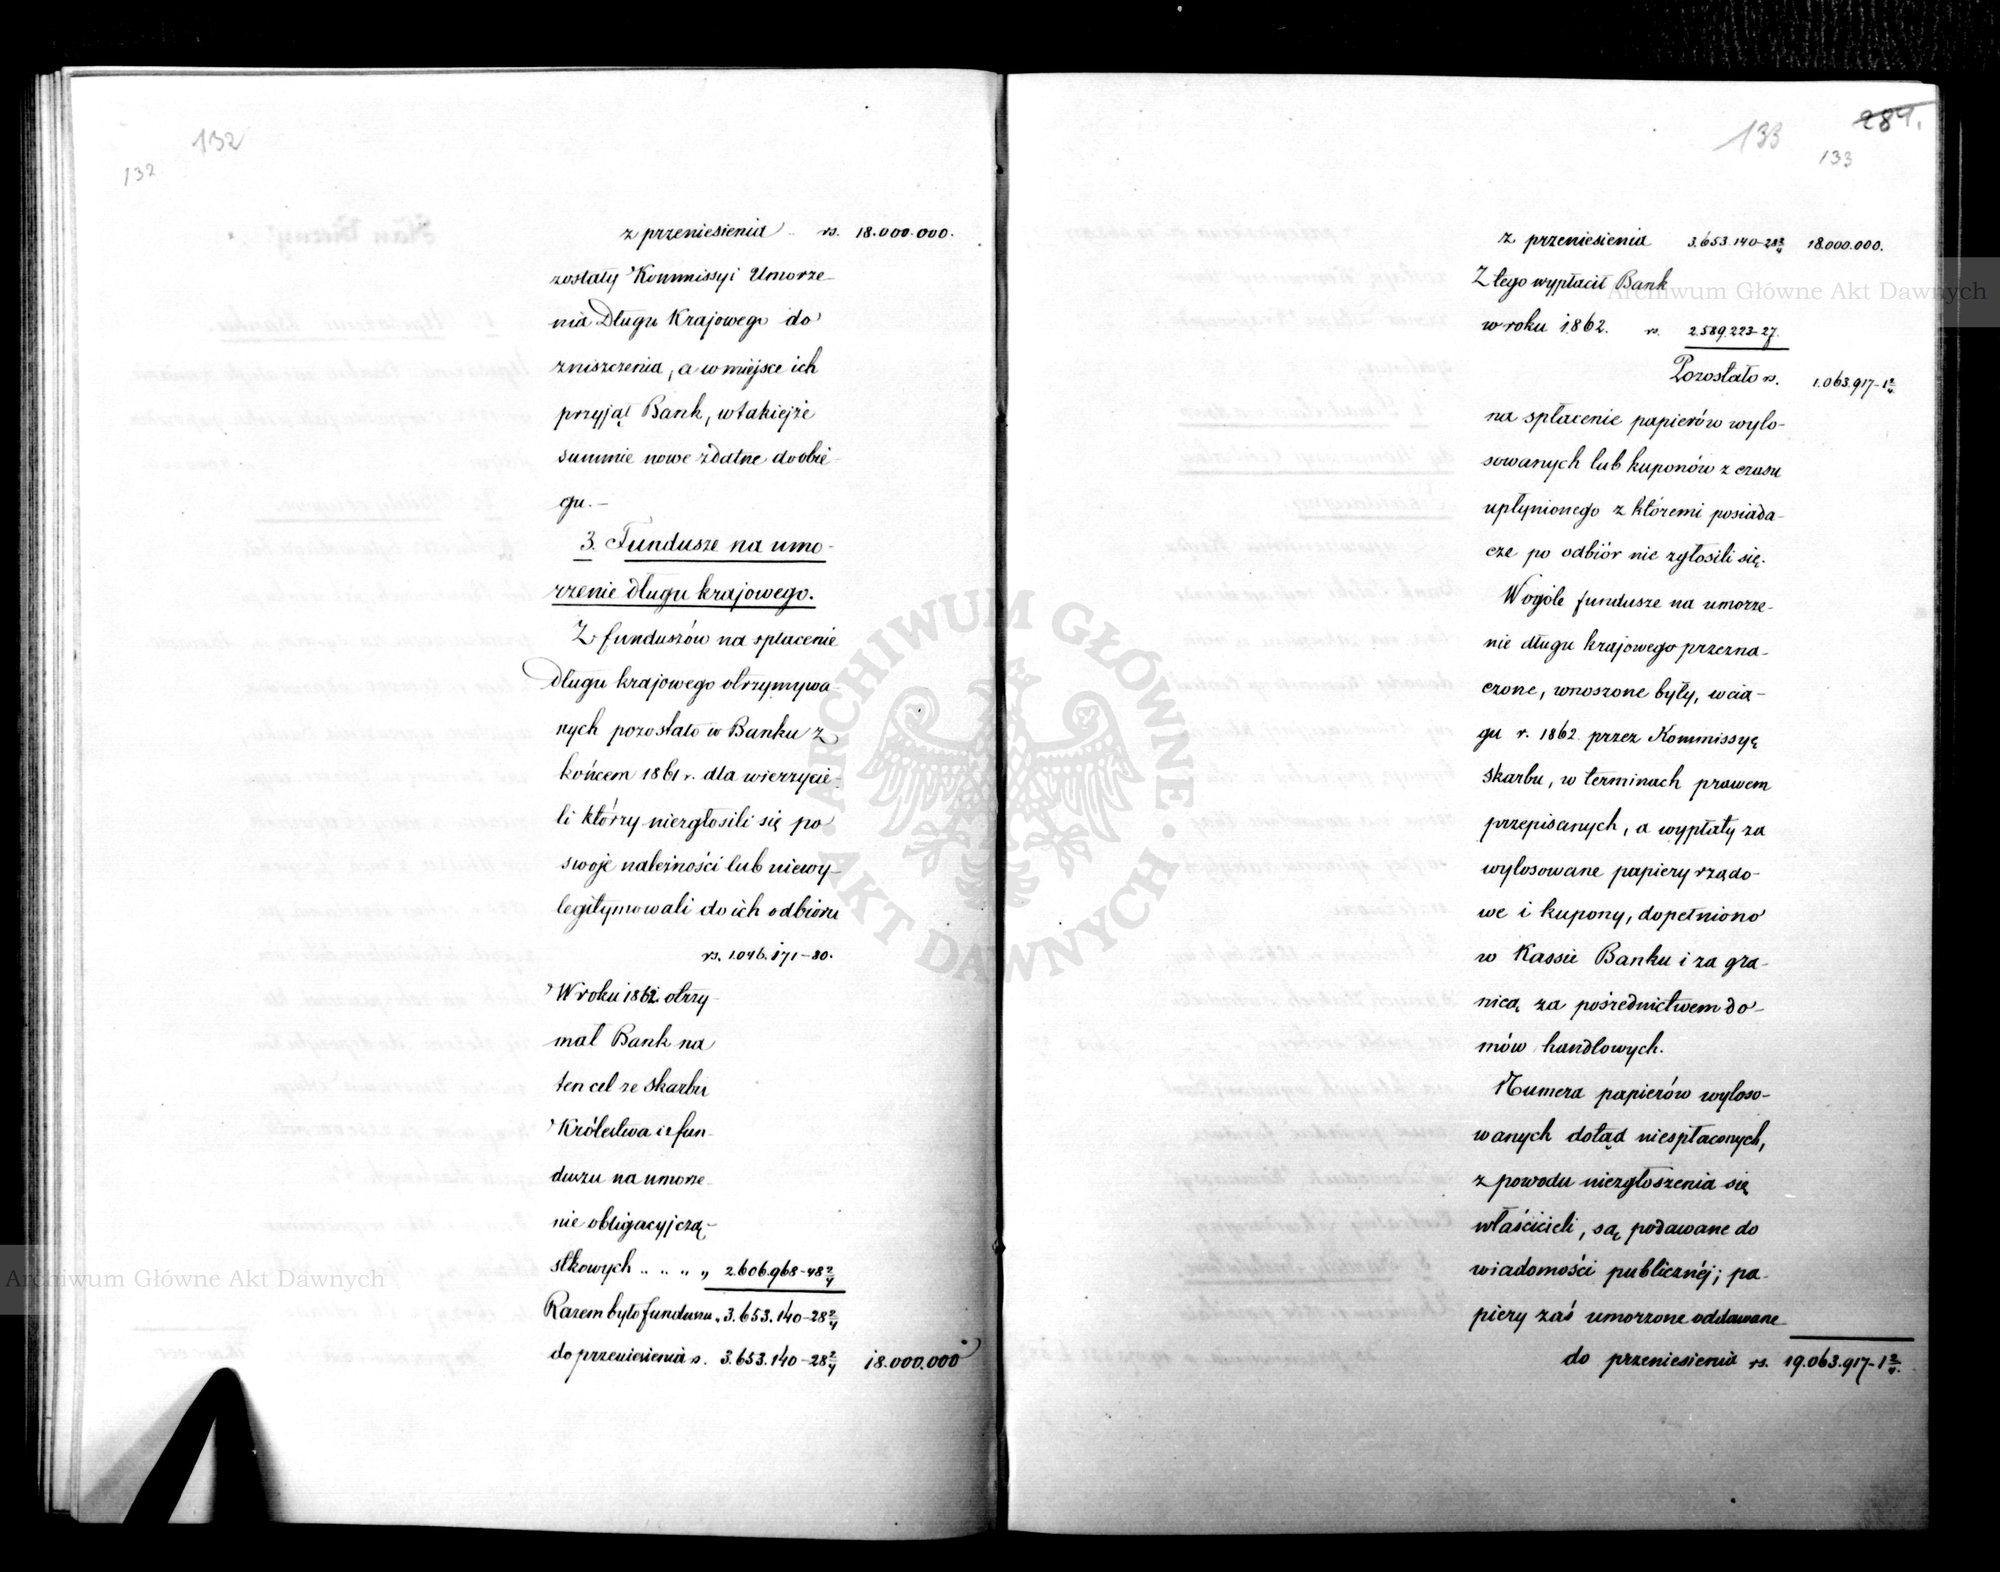 132
132
z przeniesienia rs. 18.000.000.
zostały Kommissyi Umorze-
nia Długu Krajowego do
zniszczenia, a w miejsce ich
przyjął Bank, w takiejże
summie nowe zdatne do obie-
gu. —
3. Fundusze na umo-
rzenie długu krajowego.
Z funduszów na spłacenie
Długu krajowego otrzymywa-
nych pozostało w Banku z
końcem 1861 r. dla wierzycie-
li którzy niezgłosili się po
swoje należności lub niewy-
legitymowali do ich odbioru
rs. 1.046.171-80.
W roku 1862 otrzy-
mał Bank na
ten cel ze Skarbu
Królestwa i z fun-
duszu na umorze-
nie obligacyj czą-
stkowych .. .. .. „ 2.606.968-48 2/4
Razem było funduszu „ 3.653.140-28 2/4
do przeniesienia rs. 3.653.140-28 2/4 18.000.000
284.
133
133
z przeniesienia 3.653.140-28 2/4 18.000.000.
Z tego wypłacił Bank
w roku 1862. rs. 2.589.223-27.
Pozostało rs. 1.063.917-1 2/4
na spłacenie papierów wylo-
sowanych lub kuponów z czasu
upłynionego z któremi posiada-
cze po odbiór nie zgłosili się.
Wogóle fundusze na umorze-
nie długu krajowego przezna-
czone, wnoszone były, w cią-
gu r. 1862 przez Kommissyę
skarbu, w terminach prawem
przepisanych, a wypłaty za
wylosowane papiery rządo-
we i kupony, dopełniono
w Kassie Banku i za gra-
nicą za pośrednictwem do-
mów handlowych.
Numera papierów wyloso-
wanych dotąd niespłaconych,
z powodu niezgłoszenia się
właścicieli, są podawane do
wiadomości publicznéj; pa-
piery zaś umorzone oddawane
do przeniesienia rs. 19.063.917-1 2/4.
Archiwum Główne Akt Dawnych
Archiwum Główne Akt Dawnych
ARCHIWUM GŁÓWNE
AKT DAWNYCH